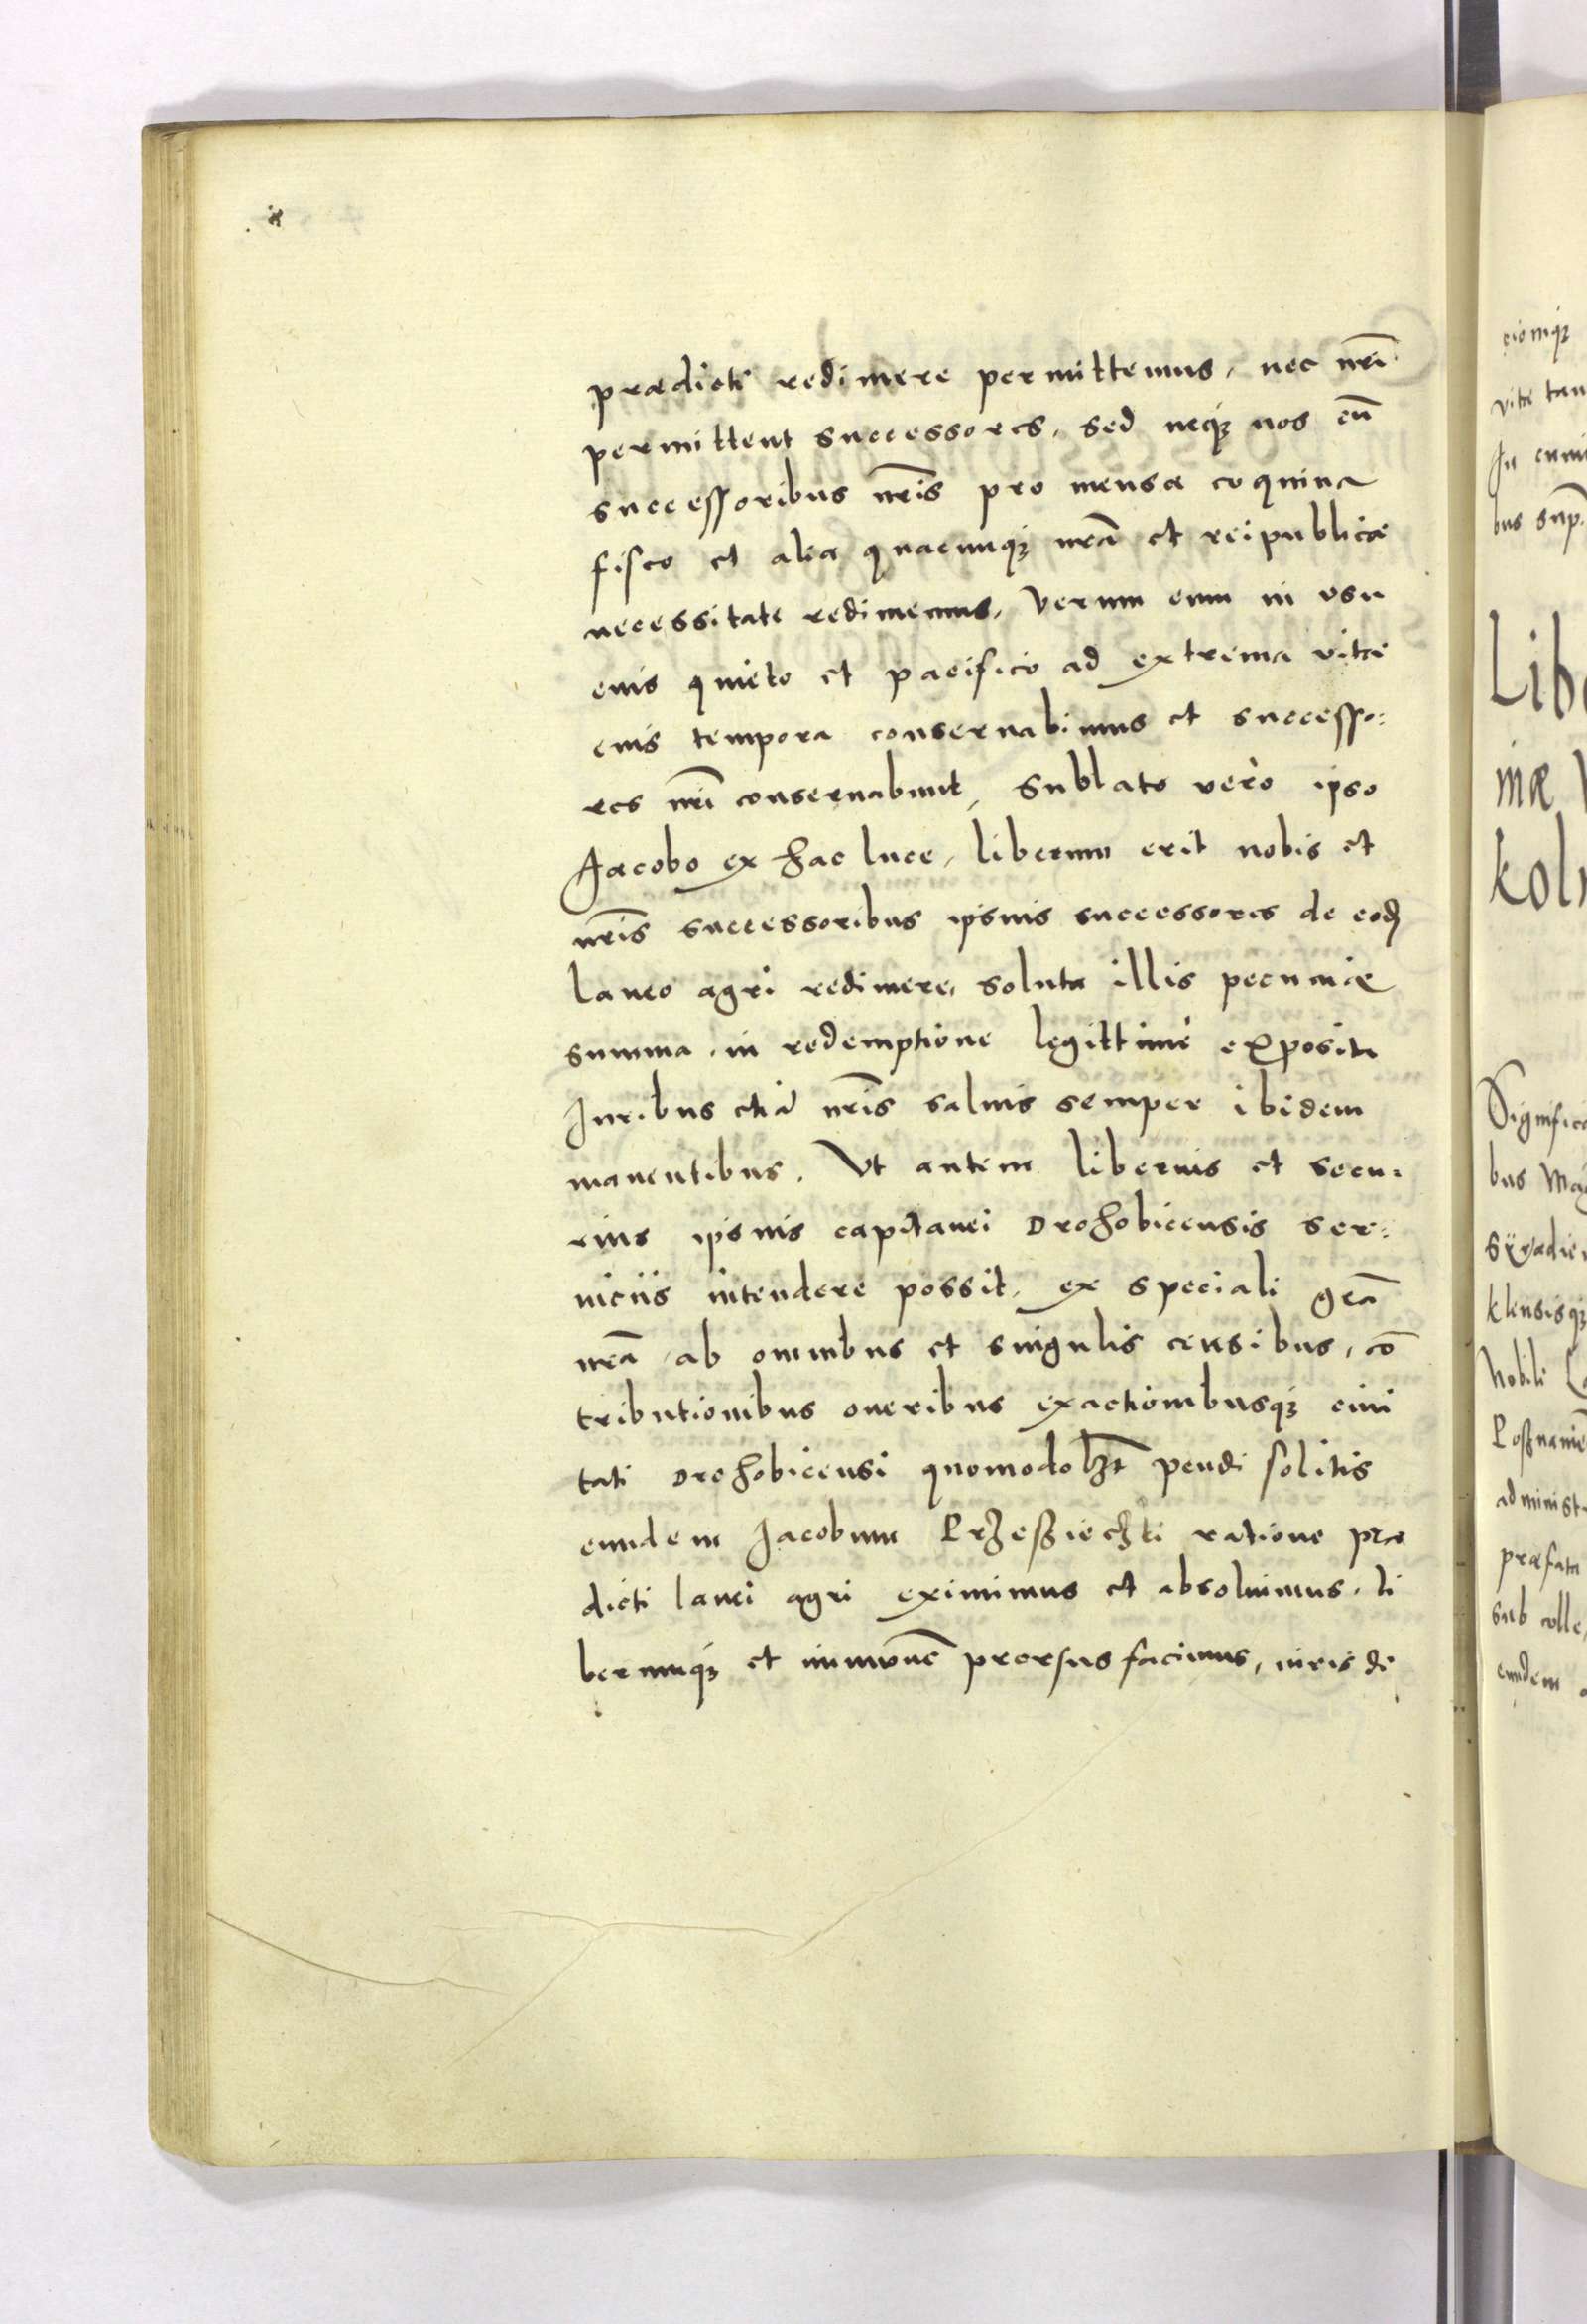 prædicti redimere permittemus, nec nr̃i
permittent successores, sed neqꝫ nos cũ
successoribus nr̃is pro mensa coquina
fisco et alia quacunqꝫ nr̃a et reipublicæ
necessitate redimemus, verum eum in usu
eius quieto et pacifico ad extrema vitæ
eius tempora conseruabimus et successo:
res nr̃i conseruabunt, Sublato verò ipso
Jacobo ex hac luce, liberum erit nobis et
nr̃is successoribus ipsius successores de eodẽ
laneo agri redimere, soluta illis pecuniæ
summa in redemptione legittimè exposita
Juribus etiã nr̃is saluis semper ibidem
manentibus. Ut autem liberius et secu:
rius ipsius capitanei Drohobicensis ser:
uiciis intendere possit, ex speciali gr̃a
nr̃a ab omnibus et singulis censibus, cõ
tributionibus oneribus exactionibusqꝫ ciui
tati Drohobicensi quomodolꝫt pendi solitis
eundem Jacobum Przeßieczki ratione præ
dicti lanei agri eximimus et absoluimus, li
berumqꝫ et immunẽ prorsus facimus, iuris de
cioniqꝫ
vitæ tan
In cuius
bus Sup.
Lib
mæ
kol
Signific
bus Mag
Syradien
klensisqꝫ
Nobili
Poßnanieñ
administ
præfata
sub colle
eundem